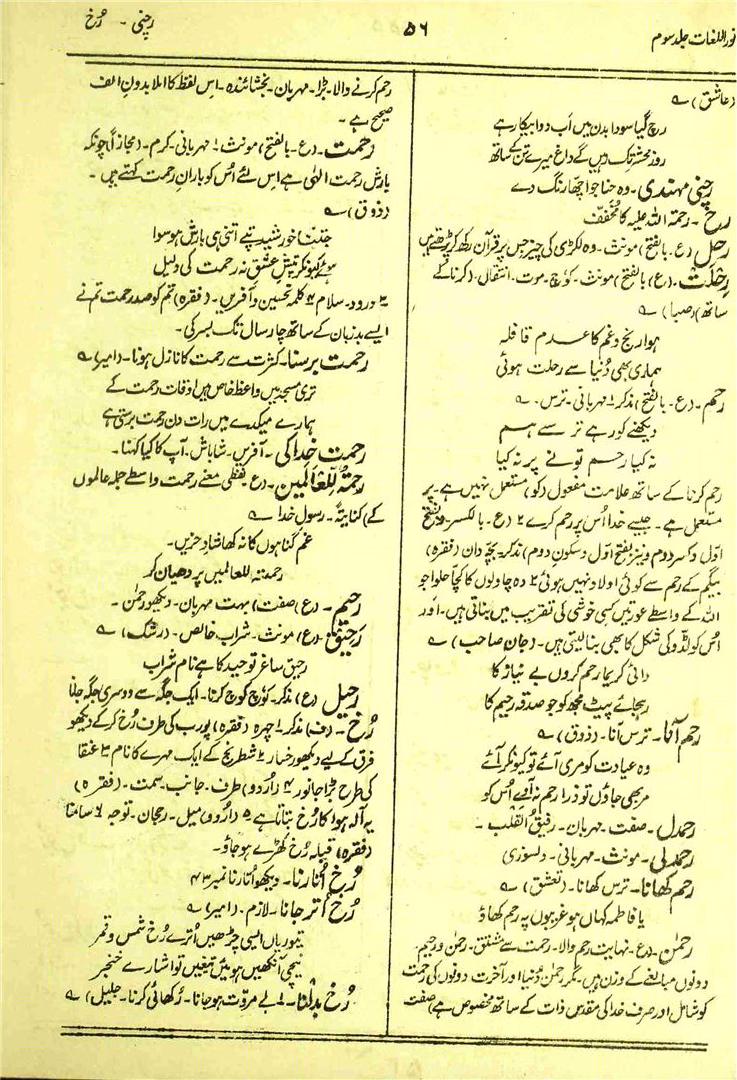 نور اللغات جلد سوم
۵۶
رچنی - رُخ
(عاشق) ؎
رچ گیا سودا بدن میں اَب دوا بیکار ہے
روزِ محشر تک ہیں گے داغ میرے تن کے ساتھ
رچنی مہندی - وہ حنا جو اچھا رنگ دے
رح - رحمۃ اللہ علیہ کا مخفّف
رحل (ع - بالفتح) مونث - وہ لکڑی کی چیز جس پر قرآن رکھ کر پڑھتے ہیں
رِحلَت - (ع) بالفتح) مونث - کوچ - موت - انتقال - (کرنا کے
ساتھ) (صبا) ؎
ہوا رنج و غم کا عدم قافلہ
ہماری بھی دُنیا سے رحلت ہوئی
رحم - (ع - بالفتح) مذکر ۱ مہربانی - ترس - ؎
دیکھنے کو رہے ترسے ہم
نہ کیا رحم تونے پر نہ کیا
رحم کرنا کے ساتھ علامت مفعول (کو) مستعمل نہیں ہے - پر
مستعمل ہے - جیسے خدا اُس پر رحم کرے ۲ (ع - بالکسر و بفتح
اوّل و کسر دوم و نیز بفتح اوّل و سکونِ دوم) مذکر - بچہ دان (فقرہ)
بیگم کے رحم سے کوئی اولاد نہیں ہوئی ۳ وہ چاولوں کا کچّا حلوا جو
اللہ کے واسطے عورتیں کسی خوشی کی تقریب میں بناتی ہیں - اور
اُس کو لڈو کی شکل کا بھی بنا لیتی ہیں - (جان صاحب) ؎
دائی کریما رحم کروں بے نیاز کا
رہجائے پیٹ مجھکو جو صدقہ رحیم کا
رحم آنا - ترس آنا - (ذوق) ؎
وہ عیادت کو مری آئے تو کیونکر آئے
مر بھی جاؤں تو ذرا رحم نہ آئے اُس کو
رحمدل - صفت - مہربان - رقیقُ القلب -
رحمدلی - مونث - مہربانی - دلسوزی
رحم کھانا - ترس کھانا - (تعشق) ؎
یا فاطمہ کہاں ہو غریبوں پہ رحم کھاؤ
رحمٰن - (ع - نہایت رحم والا - رحمت سے مشتق - رحمٰن و رحیم -
دونوں مبالغے کے وزن ہیں - مگر رحمٰن دُنیا اور آخرت دونوں کی رحمت
کو شامل اور صرف خدا کی مقدس ذات کے ساتھ مخصوص ہے) صفت
رحم کرنے والا - بڑا - مہربان - بخشائندہ - اس لفظ کا املا بدون الف
صحیح ہے -
رحمت - (ع - بالفتح) مونث ۱ مہربانی - کرم - (مجازاً) چونکہ
بارش رحمت الٰہی ہے اس لئے اُس کو بارانِ رحمت کہتے ہیں -
(ذوق) ؎
جتنا خورشید تپے اتنی ہی بارش ہو سوا
ہوئے کیونکر تپشِ عشق نہ رحمت کی دلیل
۲ درود - سلام ۳ کلمہ تحسین و آفریں - (فقرہ) تم کو صد رحمت تم نے
ایسے بدزبان کے ساتھ چار سال تک بسر کی -
رحمت برسنا - کثرت سے رحمت کا نازل ہونا - (امیر) ؎
تری مسجد میں واعظ خاص ہیں اوقات رحمت کے
ہمارے میکدے میں رات دن رحمت برستی ہے
رحمت خدا کی - آفریں - شاباش - آپ کا کیا کہنا -
رحمۃٌ للعٰالمین - (ع - لفظی معنے رحمت واسطے جملہ عالموں
کے) کنایتہً - رسولِ خدا ؎
غم گناہوں کا نہ کھا شادِ حزیں -
رحمۃ للعالمیں پر دھیان کر
رحیم - (ع) (صفت) بہت مہربان - دیکھو رحمٰن -
رحیق - (ع) مونث - شراب خالص - (رشک) ؎
رحیق ساغر توحید کا ہے نام شراب
رحیل (ع) مذکر - کوچ کوچ کرنا - ایک جگہ سے دوسری جگہ جانا
رُخ - (ف) مذکر ۱ چہرہ (فقرہ) پورب کی طرف رُخ کر کے دیکھو
فرق کے لیے دیکھو رخسار ۲ شطرنج کے ایک مہرے کا نام ۳ عنقا
کی طرح بڑا جانور ۴ (اُردو) طرف - جانب - سمت - (فقرہ)
یہ آلہ ہوا کا رُخ بتاتا ہے ۵ (اُردو) میل - رجحان - توجہ ۶ سامنا
(فقرہ) قبلہ رُخ کھڑے ہو جاؤ -
رُخ اُتارنا - دیکھو اُتارنا نمبر ۴۳
رُخ اُتر جانا - لازم - (امیر) ؎
تیوریاں ایسی چڑھیں اُترے رُخ شمس و قمر
نیچی آنکھیں ہوئیں تیغیں تو اشارے خنجر
رُخ بدلنا - ۱ بے مروّت ہو جانا - رُکھائی کرنا - (جلیل) ؎